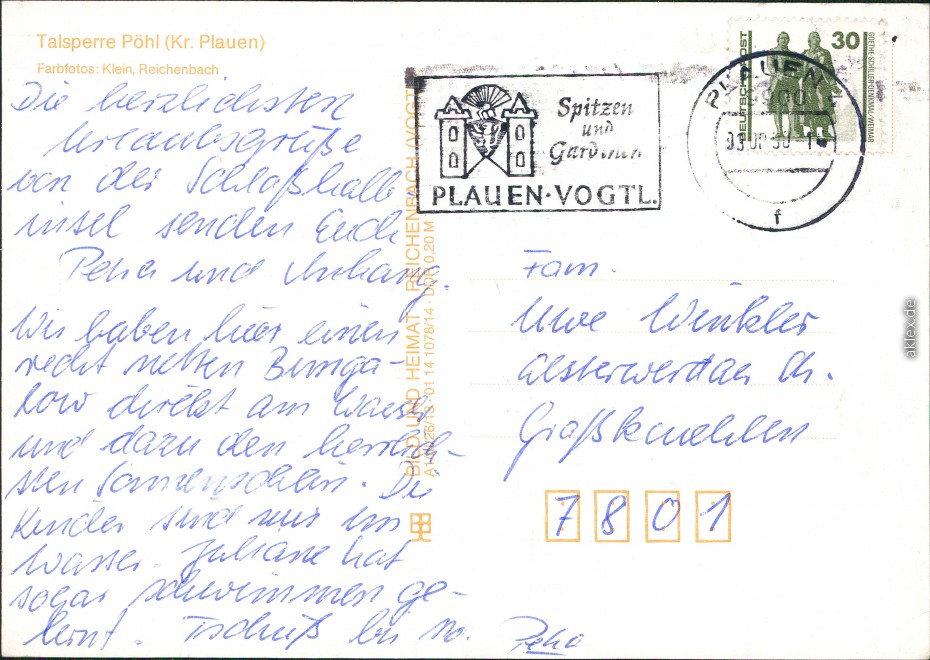 Talsperre Pöhl (Kr. Plauen)
Farbfotos: Klein, Reichenbach
Die herzlichsten
Urlaubsgrüße
von der Schloßhalb-
insel senden Euch
Petra und Anhang.
Wir haben hier einen
recht netten Bunga-
low direkt am Wasser
und dazu den herrlich-
sten Sonnenschein. Die
Kinder sind nur im
Wasser. Juliane hat
sogar schwimmen ge-
lernt. Tschüß bis Mo. Petra
BILD UND HEIMAT REICHENBACH (VOGTL
01 14 1078/14 · DDR 0,20 M
Spitzen
und
Gardinen
PLAUEN·VOGTL.
PLAUEN
f
DEUTSCHE POST
30
GOETHE-SCHILLER-DENKMAL/WEIMAR
Fam.
Uwe Winkler
Elsterwerdaer Str.
Großkmehlen
7801
aklex.de